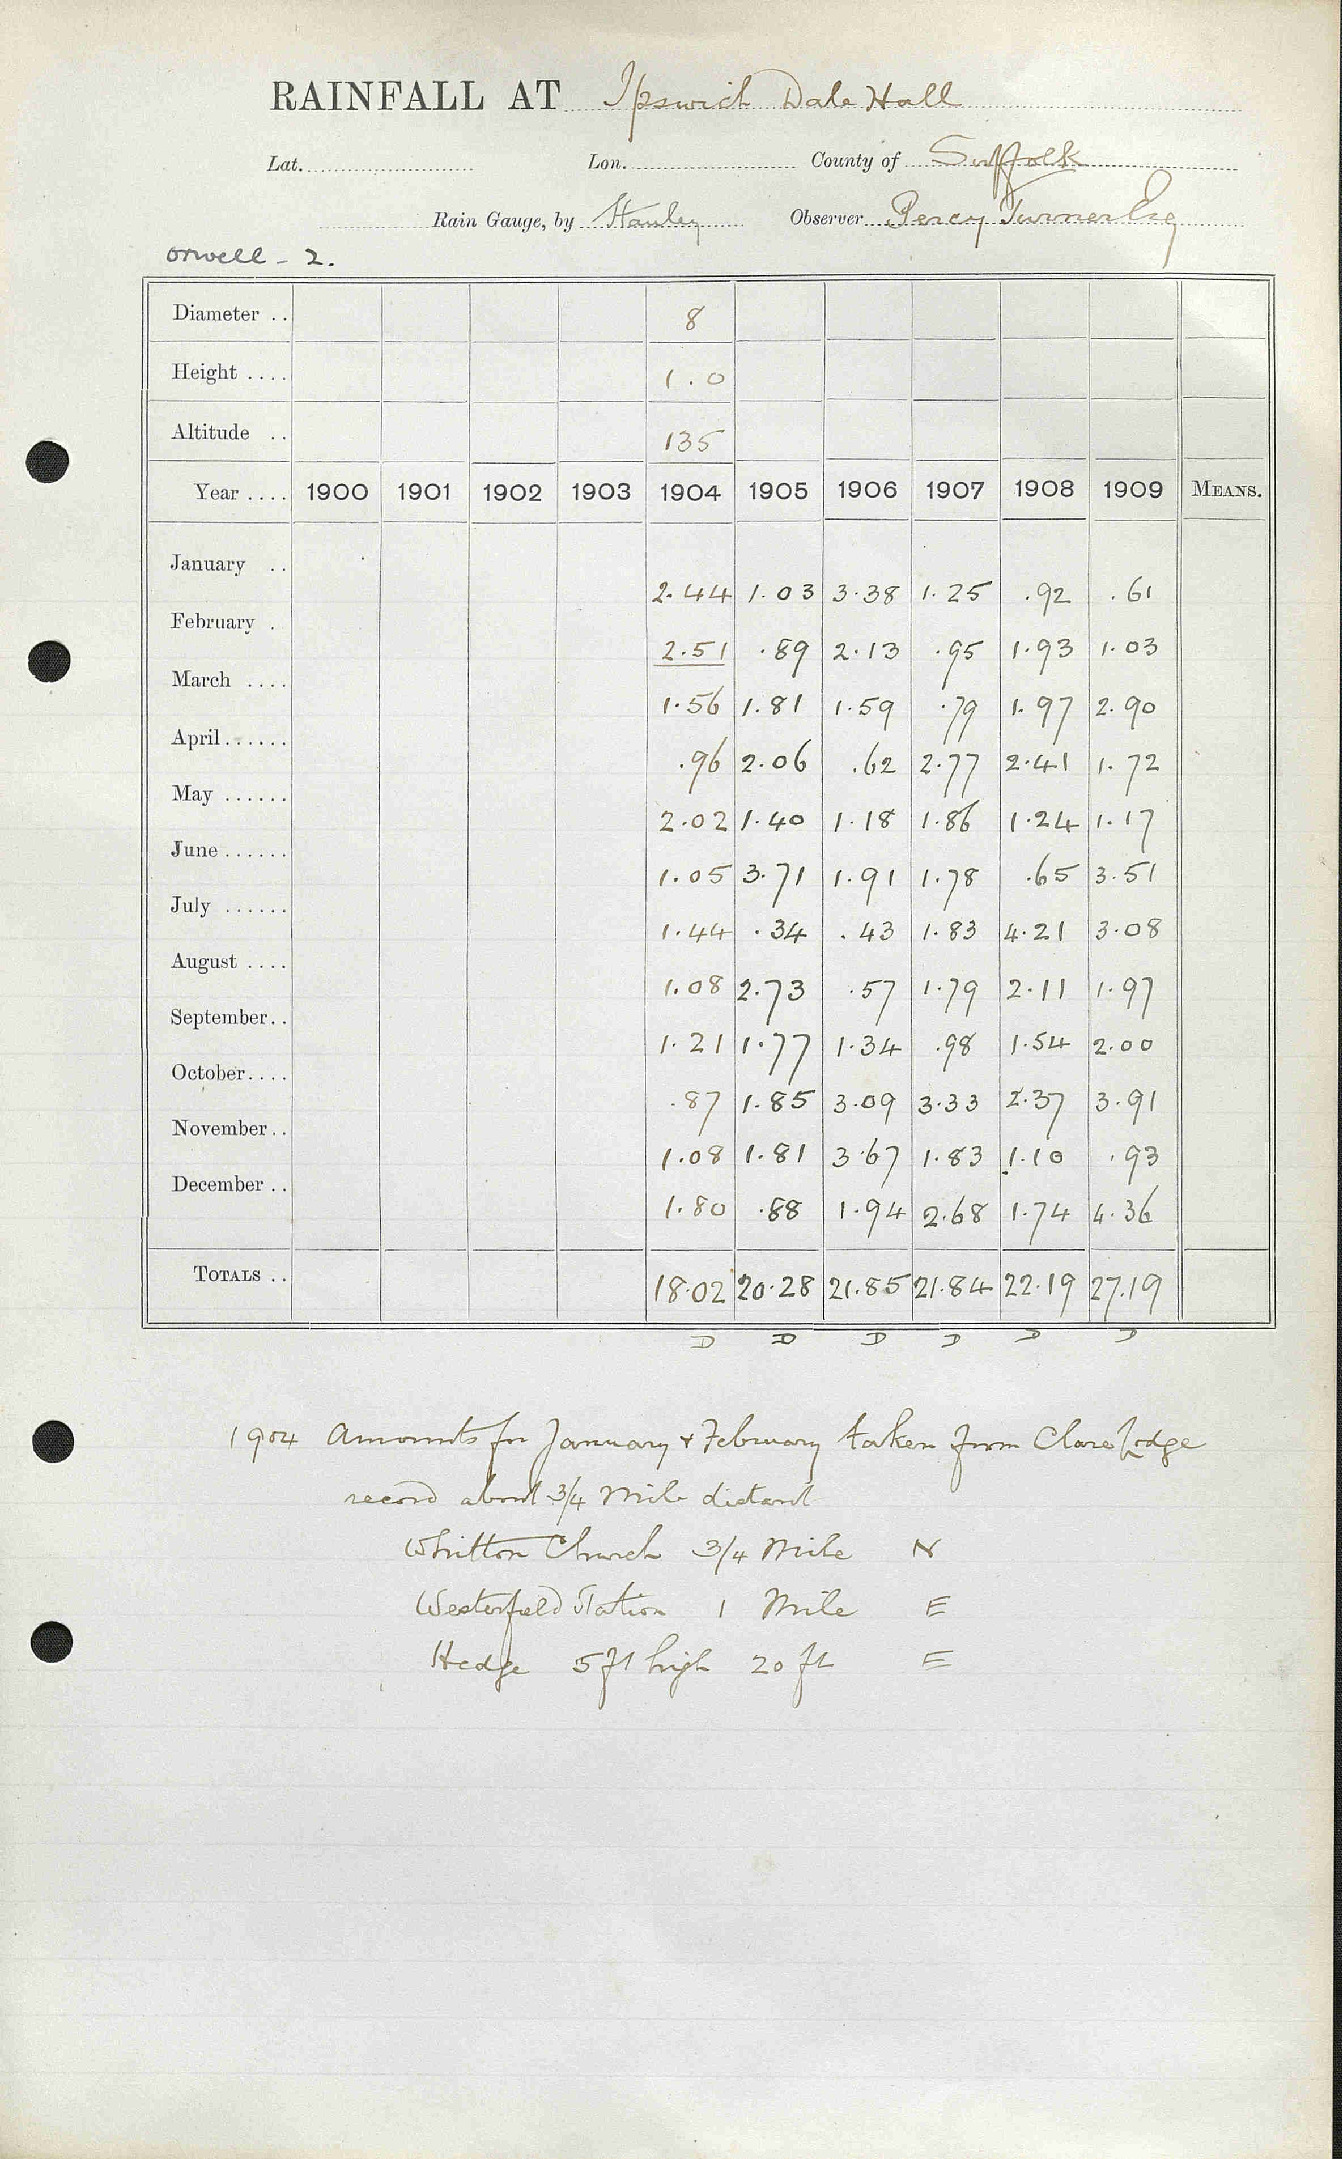 RAINFALL AT Ipswich Dale Hall
Lat. Lon. County of Suffolk
Rain Gauge, by Stanley Observer Percy Turner Esq
Orwell - 2.
Diameter .. 8
Height .... 1.0
Altitude .. 135
Year .... 1900 1901 1902 1903 1904 1905 1906 1907 1908 1909 MEANS.
January .. 2.44 1.03 3.38 1.25 .92 .61
February . 2.51 .89 2.13 .95 1.93 1.03
March .... 1.56 1.81 1.59 .79 1.97 2.90
April...... .96 2.06 .62 2.77 2.41 1.72
May ...... 2.02 1.40 1.18 1.86 1.24 1.17
June...... 1.05 3.71 1.91 1.78 .65 3.51
July ...... 1.44 .34 .43 1.83 4.21 3.08
August .... 1.08 2.73 .57 1.79 2.11 1.97
September.. 1.21 1.77 1.34 .98 1.54 2.00
October.... .87 1.85 3.09 3.33 2.37 3.91
November.. 1.08 1.81 3.67 1.83 1.10 .93
December .. 1.80 .88 1.94 2.68 1.74 4.36
TOTALS .. 18.02 20.28 21.85 21.84 22.19 27.19
D D D D D D
1904 Amounts for January & February taken from Clare Lodge
record about 3/4 Mile distant
Whitton Church 3/4 Mile N
Westerfield Station 1 Mile E
Hedge 5 ft high 20 ft E